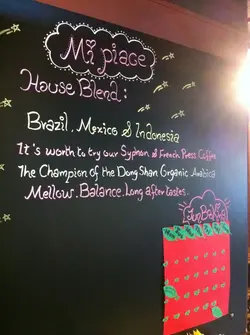 Mi piace
House Blend:
Brazil, Mexico & Indonesia
It's worth to try our Syphon & French Press Coffee
The Champion of the DongShan Organic Arabica
Mellow. Balance. Long after tastes.